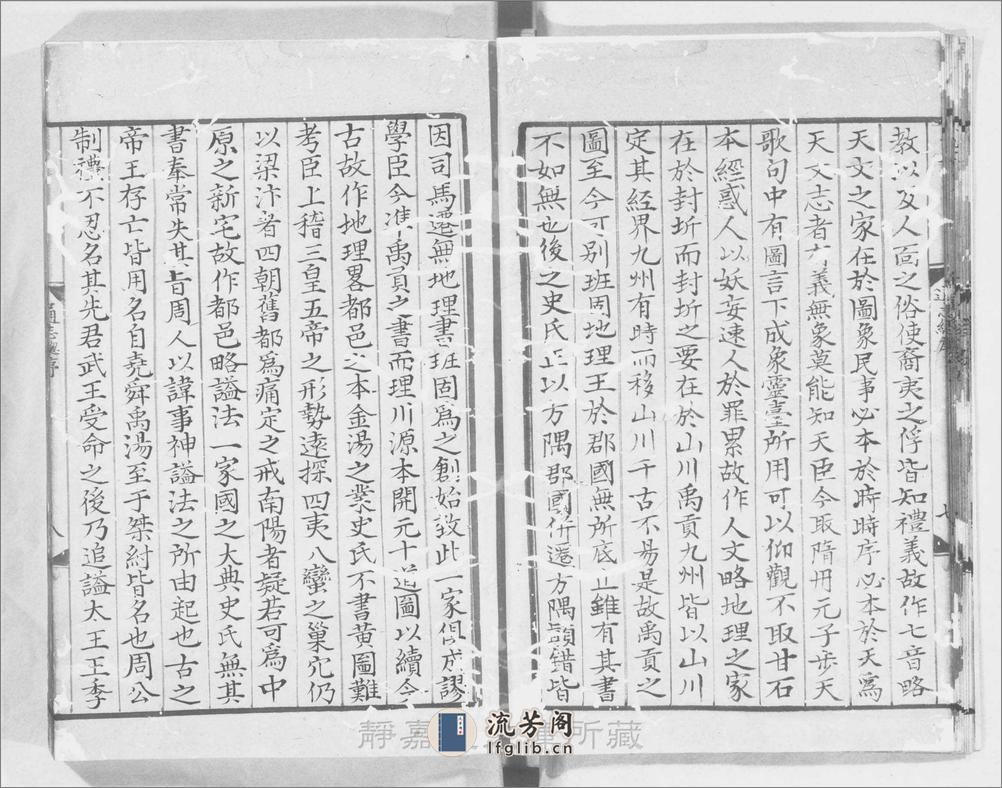 教以及人面之俗使裔夷之俘皆知禮義故作七音略
天文之家在於圖象民事必本於時時序必本於天爲
天文志者有義無象莫能知天臣今取隋丹元子步天
歌句中有圖言下成象靈臺所用可以仰觀不取甘石
本經惑人以妖妄速人於罪累故作人文略地理之家
在於封圻而封圻之要在於山川禹貢九州皆以山川
定其經界九州有時而移山川千古不易是故禹貢之
圖至今可別班固地理王於郡國無所底止雖有其書
不如無也後之史氏正以方隅郡國併遷方隅顛錯皆
因司馬遷無地理書班固爲之創始致此一家俱成謬
學臣今準禹貢之書而理川源本開元十道圖以續今
古故作地理畧都邑之本金湯之業史氏不書黄圖難
考臣上稽三皇五帝之形勢遠探四夷八蠻之巢穴仍
以梁汴者四朝舊都爲痛定之戒南陽者疑若可爲中
原之新宅故作都邑略謚法一家國之大典史氏無其
書奉常失其旨周人以諱事神謚法之所由起也古之
帝王存亡皆用名自堯舜禹湯至于桀紂皆名也周公
制禮不忍名其先君武王受命之後乃追謚太王王季
通志總序
七
八
靜嘉 所藏
流芳阁
lfglib.cn